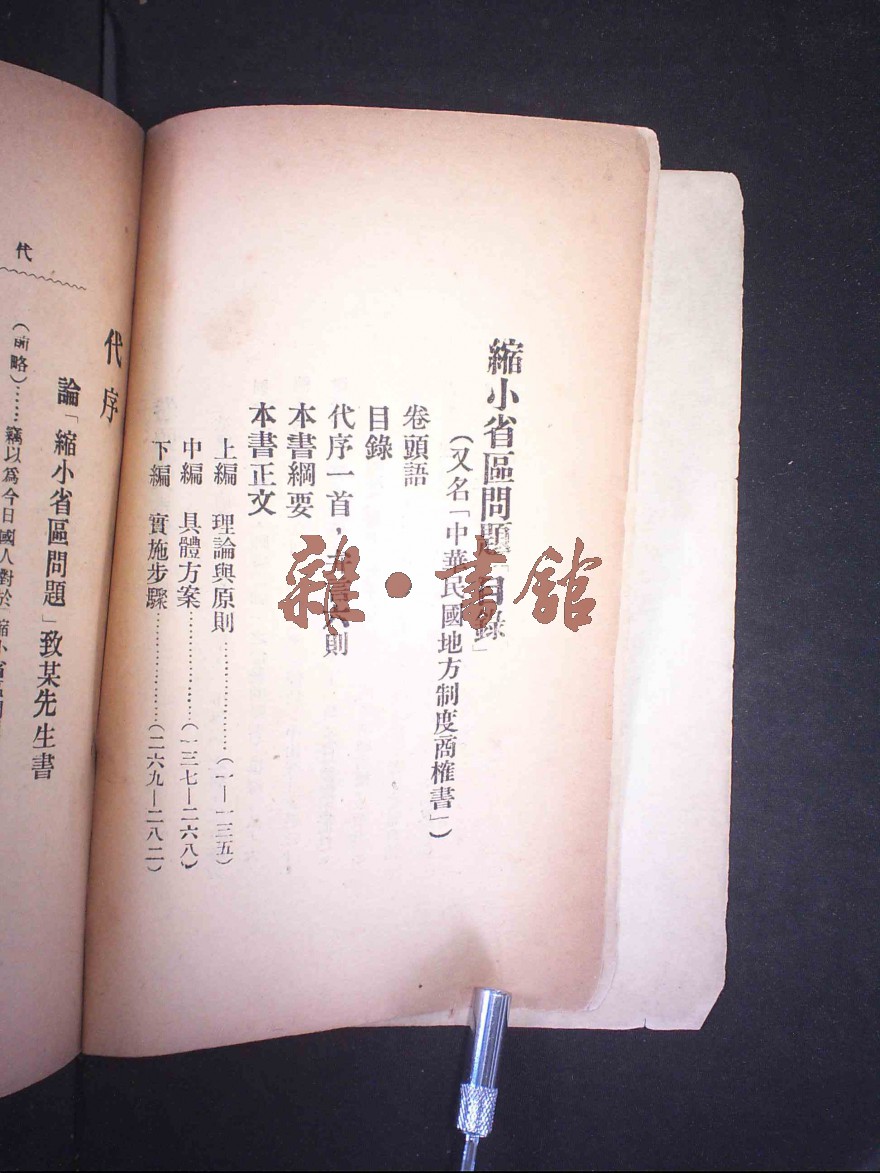 縮小省區問題「目錄」
(又名「中華民國地方制度商榷書」)
卷頭語
目錄
代序一首，弁言六則
本書綱要
本書正文
上編　理論與原則…………………(一—一三五)
中編　具體方案…………………(一三七—二六八)
下編　實施步驟…………………(二六九—二八二)
代序
論「縮小省區問題」致某先生書
(前略)……竊以爲今日國人對於「縮小省區問
代
雜·書館